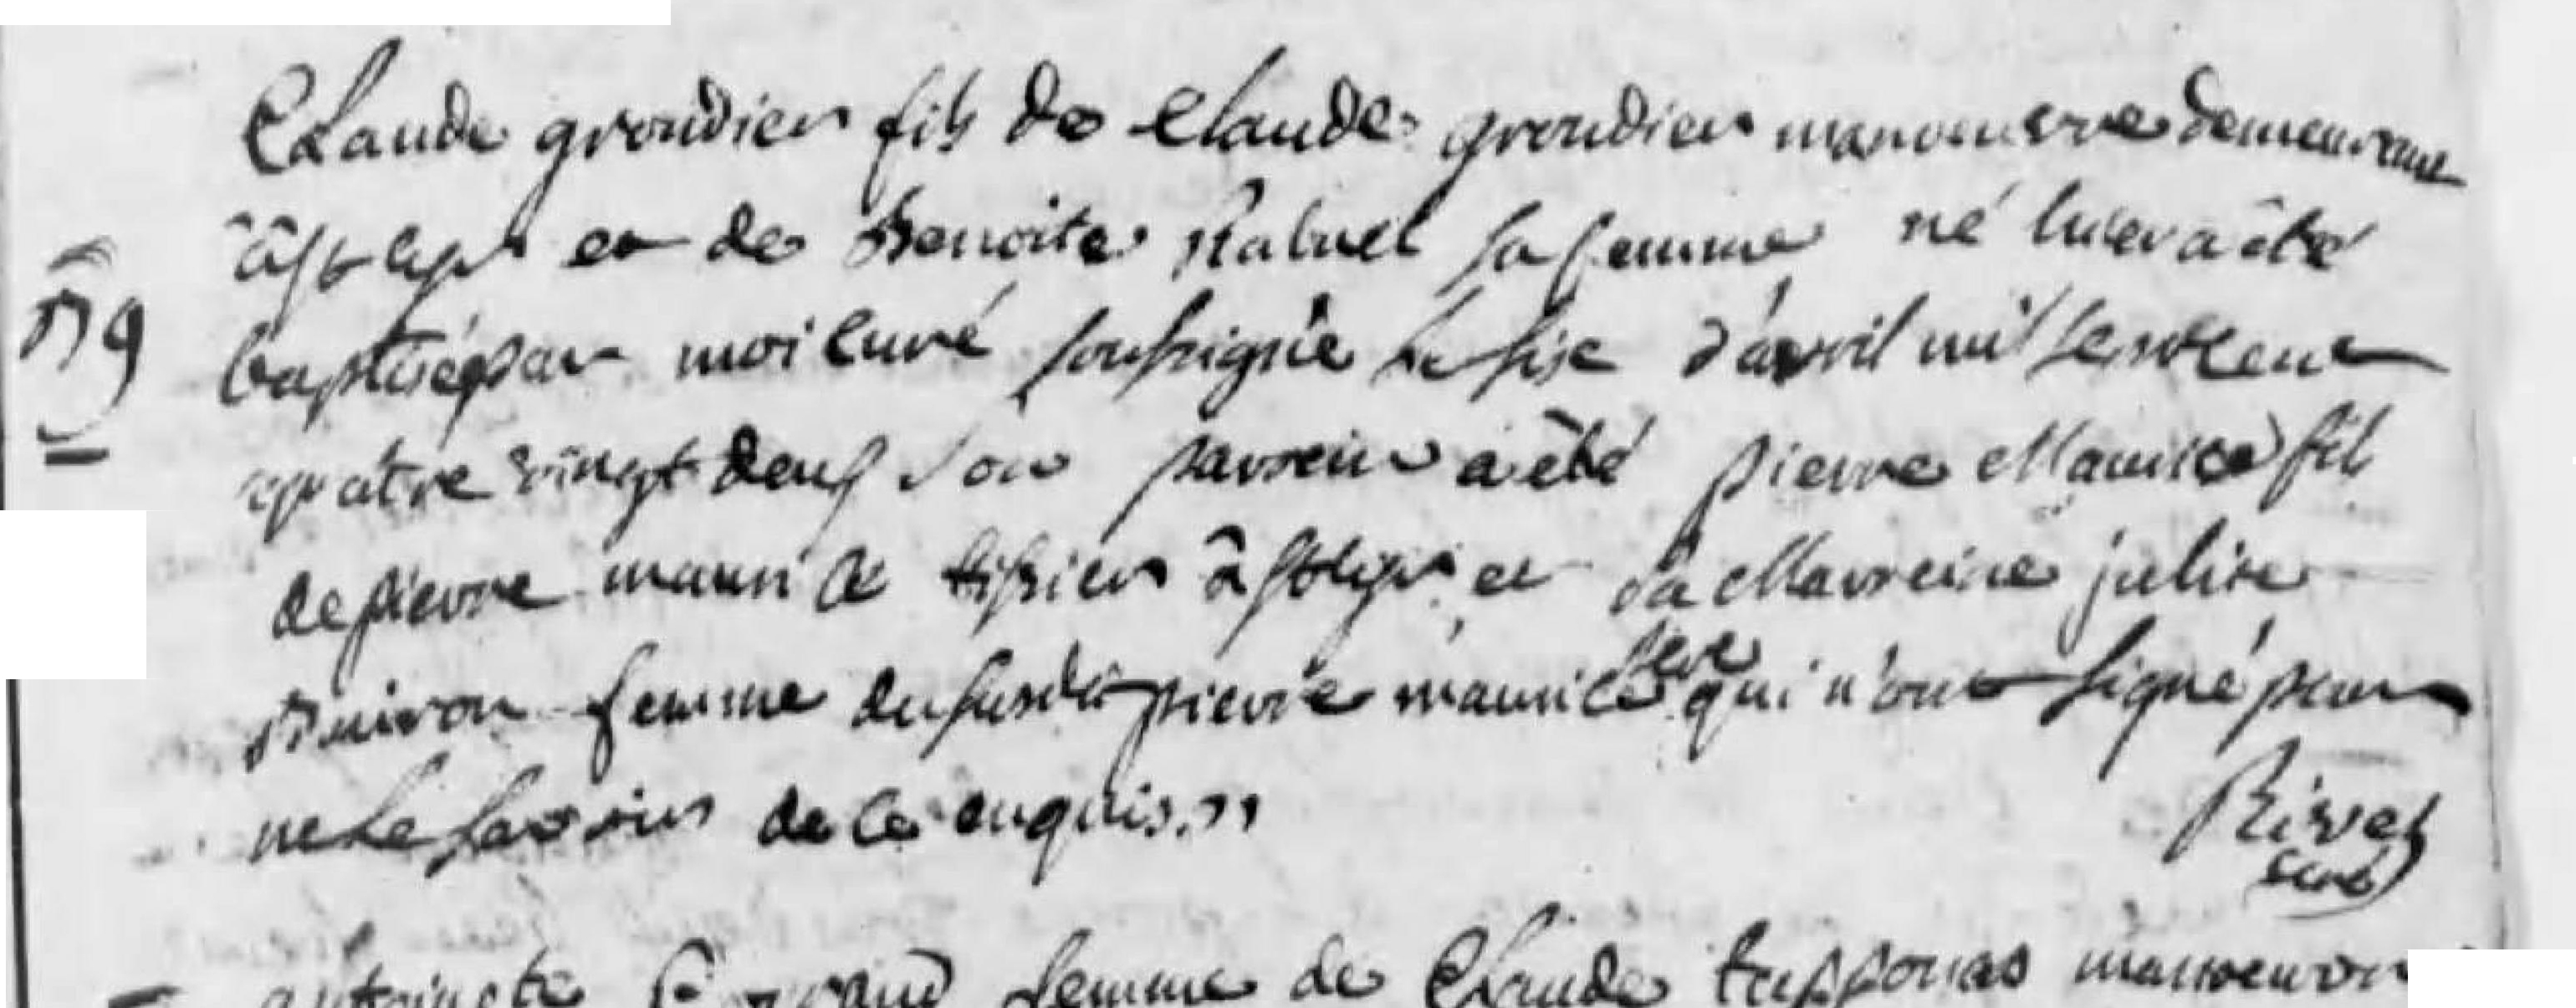 Claude grondier fils de Claude grondier manouvre demeurant
et de Benoite Rabuel sa femme né hier a été
baptisé par moi curé soussigné le sise d'avril mil sept cent
quatre vingt deux son parrein a été pierre Maurice fils
de pierre maurice tissier à et sa Marreine
Buiron femme du susdit pierre maurice pere qui n'ont signé pour
ne le savoir de ce enquis.//
Rivet
curé
femme de Claude manoeuvre